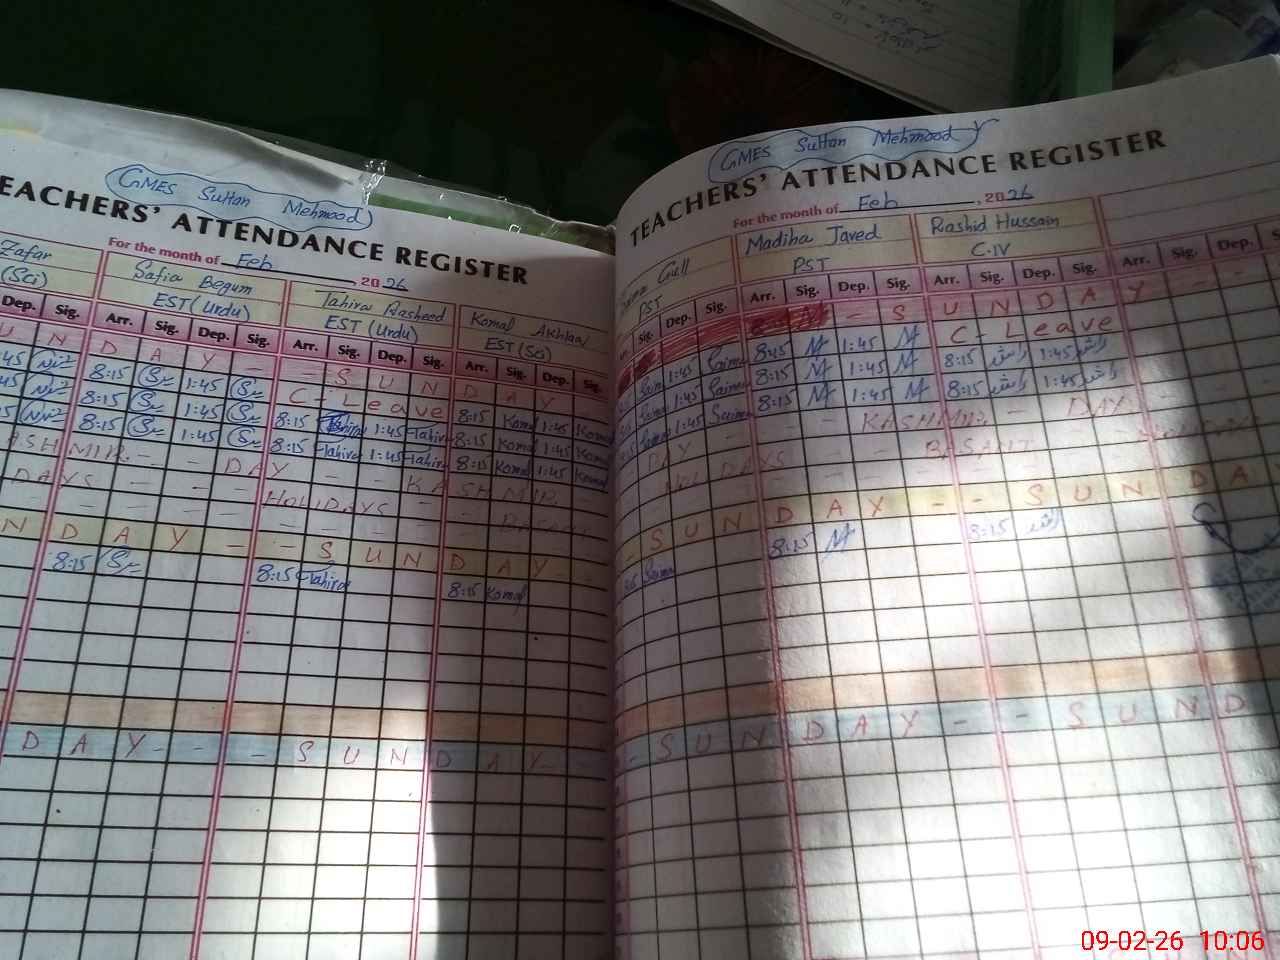 GMES Sultan Mehmood
TEACHERS' ATTENDANCE REGISTER
For the month of Feb, 2026
Zafar (Sci)
Safia Begum EST (Urdu)
Tahira Rasheed EST (Urdu)
Komal Akhlaq EST (Sci)
Dep. Sig. Arr. Sig. Dep. Sig. Arr. Sig. Dep. Sig. Arr. Sig. Dep. Sig.
U N D A Y - - S U N D A Y -
8:15 1:45 C - Leave 8:15 Komal 1:45 Komal
8:15 1:45 8:15 1:45 Tahira 8:15 Komal 1:45 Komal
8:15 1:45 8:15 Tahira 1:45 Tahira 8:15 Komal 1:45 Komal
ASHMIR - - DAY - - - KASHMIR -
DAYS - - - HOLIDAYS - - - BASANT
N D A Y - - S U N D A Y -
8:15 8:15 Tahira 8:15 Komal
D A Y - - - S U N D A Y -
GMES Sultan Mehmood
TEACHERS' ATTENDANCE REGISTER
For the month of Feb, 2026
Gull PST
Madiha Javed PST
Rashid Hussain C-IV
Sig. Dep. Sig. Arr. Sig. Dep. Sig. Arr. Sig. Dep. Sig. Arr. Sig. Dep.
- S U N D A Y -
Saima 1:45 Saima 8:45 1:45 C - Leave
Saima 1:45 Saima 8:15 1:45 8:15 راشد 1:45 راشد
Saima 1:45 Saima 8:15 1:45 8:15 راشد 1:45 راشد
DAY - - - KASHMIR - DAY
HOLIDAYS - - - BASANT
- S U N D A Y - - S U N D A
Saima 8:15 8:15 راشد
- S U N D A Y - - S U N D
09-02-26 10:06